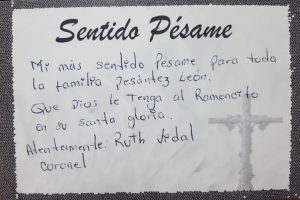 Sentido Pésame
Mi más sentido Pésame para toda
la familia Pesántez León.
Que Dios le Tenga al Ramoncito
en su santa gloria.
Atentamente: Ruth Vidal
Coronel